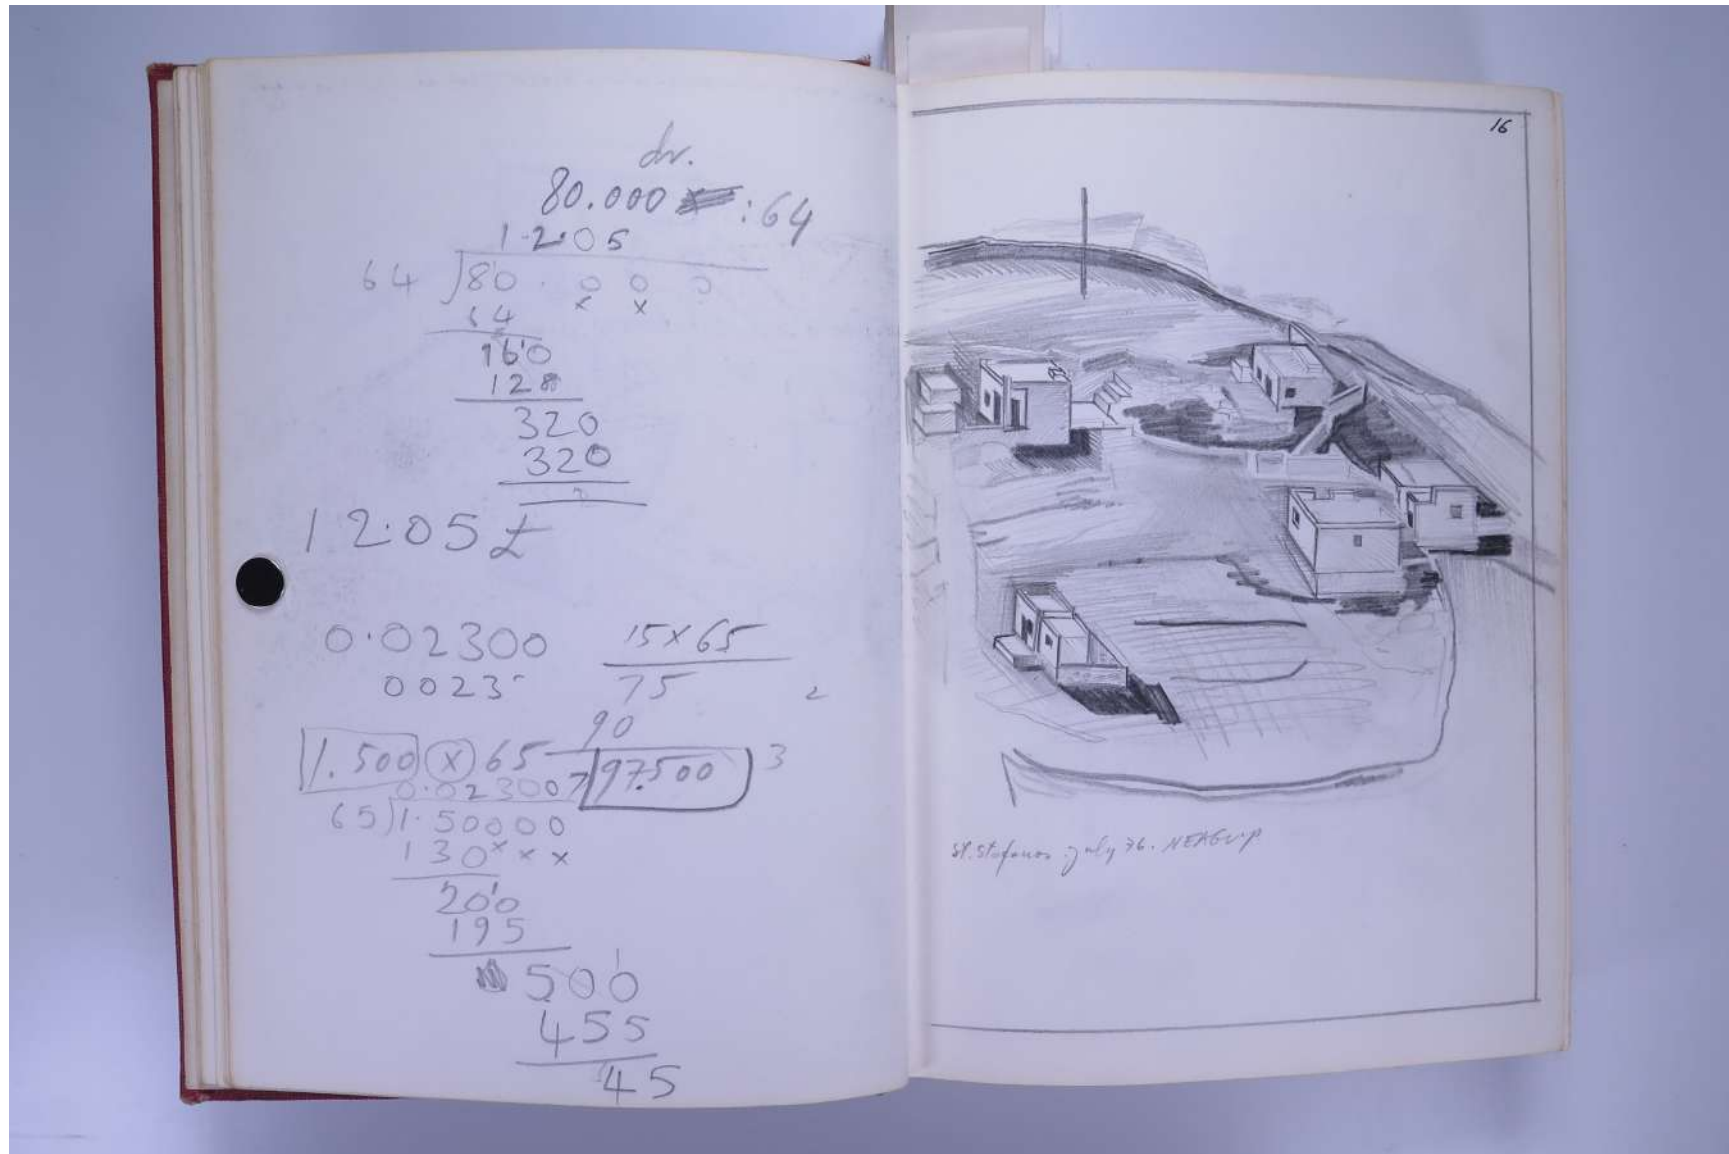 dr.
80.000 :64
1.2.05
64 80.000
x x
64
160
128
320
320
12.05£
0.02300
0023
15x65
75
2
90
1.500 x 65 97.500 3
0.023007
65)1.50000
130xxx
200
195
500
455
45
16
St. Stefanos july 76. NEAGU.P